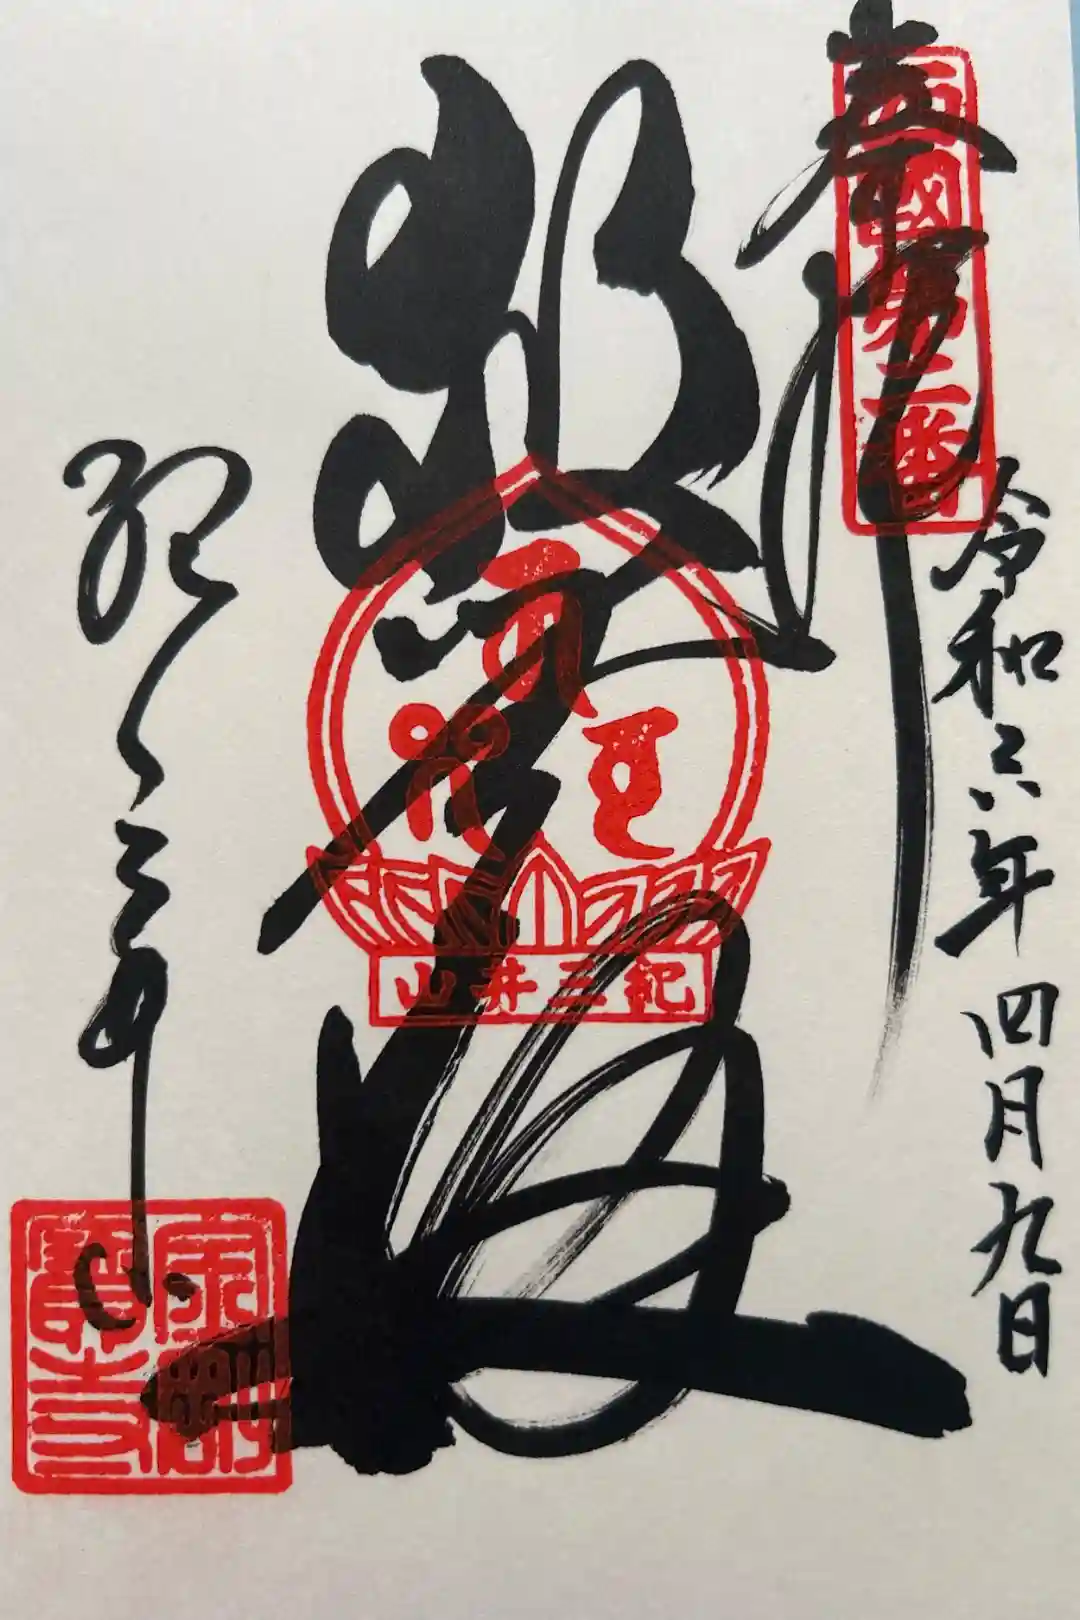 奉拝
西國第二番
令和六年四月九日
救世殿
紀三井山
紀三井寺
金剛
寶寺